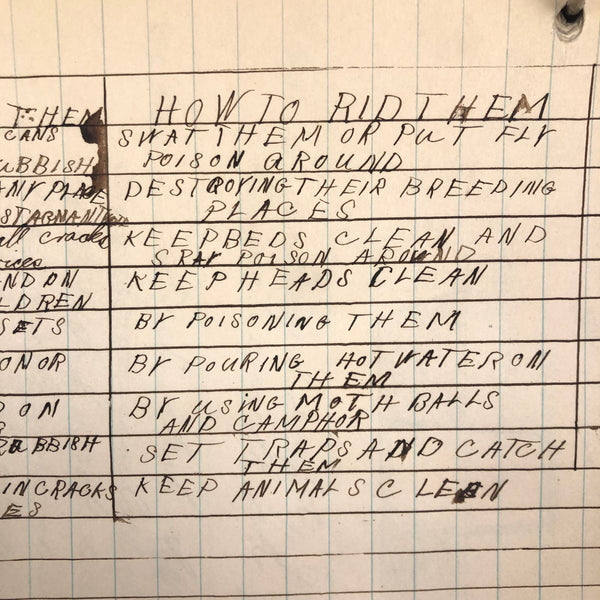 THEM HOW TO RID THEM
CANS SWAT THEM OR PUT FLY
UBBISH POISON AROUND
ANY PLACE DESTROYING THEIR BREEDING
STAGNANT PLACES
all cracks KEEP BEDS CLEAN AND
SPRAY POISON AROUND
ND ON KEEP HEADS CLEAN
LDREN
SETS BY POISONING THEM
ON OR BY POURING HOT WATER ON
THEM
ON BY USING MOTH BALLS
AND CAMPHOR
RUBBISH SET TRAPS AND CATCH
THEM
IN CRACKS KEEP ANIMALS CLEAN
ES